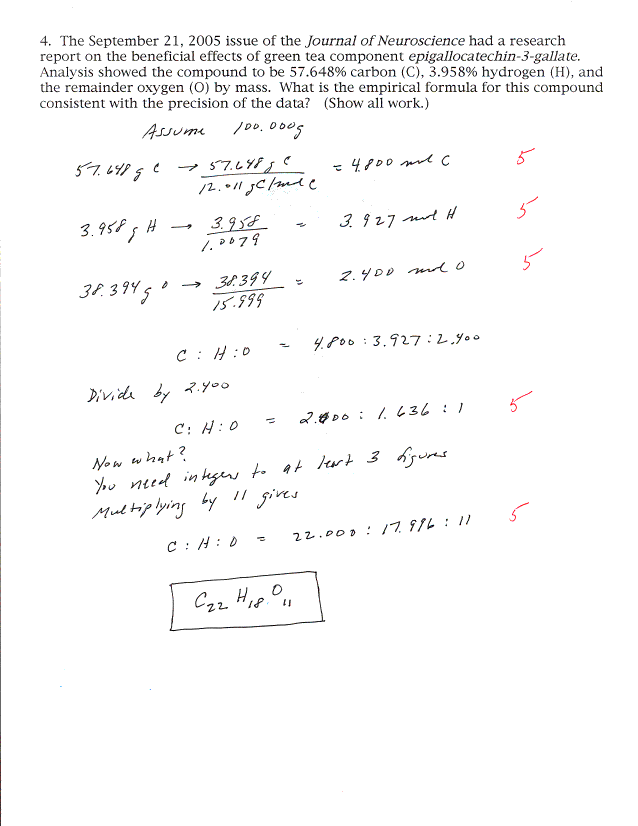 4. The September 21, 2005 issue of the Journal of Neuroscience had a research
report on the beneficial effects of green tea component epigallocatechin-3-gallate.
Analysis showed the compound to be 57.648% carbon (C), 3.958% hydrogen (H), and
the remainder oxygen (O) by mass. What is the empirical formula for this compound
consistent with the precision of the data? (Show all work.)
Assume 100.000g
57.648 g C → 57.648 g C / 12.011 g C/mol C = 4.800 mol C 5
3.958 g H → 3.958 / 1.0079 = 3.927 mol H 5
38.394 g O → 38.394 / 15.999 = 2.400 mol O 5
C : H : O = 4.800 : 3.927 : 2.400
Divide by 2.400
C : H : O = 2.000 : 1.636 : 1 5
Now what?
You need integers to at least 3 figures
Multiplying by 11 gives
C : H : O = 22.000 : 17.996 : 11 5
C22 H18 O11